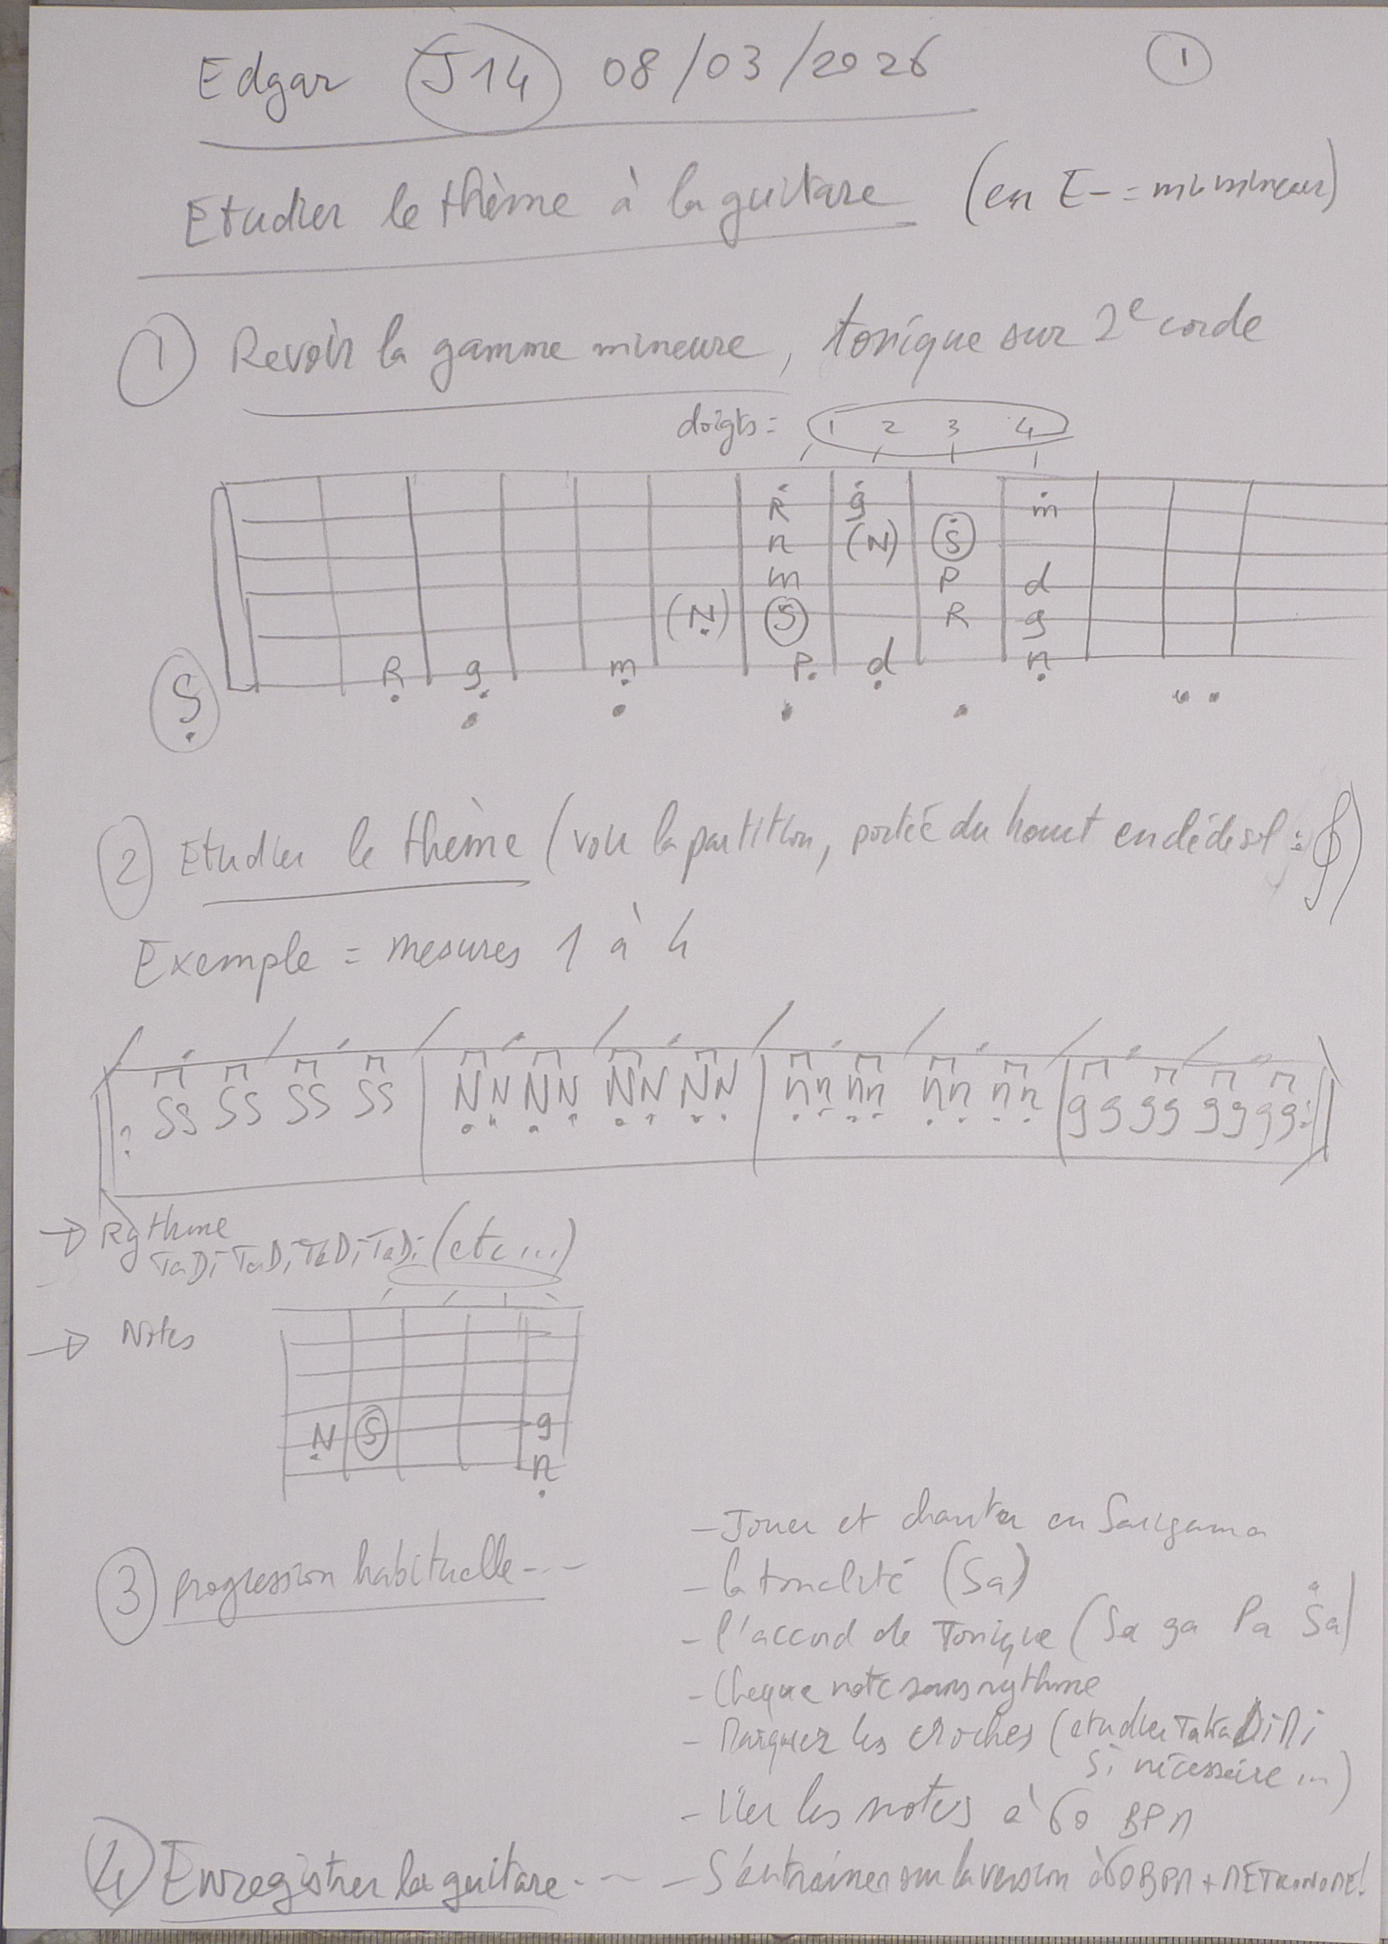 Edgar J14 08/03/2026 1
Etudier le thème à la guitare (en E- = mi mineur)
1 Revoir la gamme mineure, tonique sur 2e corde
doigts = 1 2 3 4
R g m
n (N) S
m P d
(N) S R g
S R g m P d n
2 Etudier le thème (voir la partition, portée du haut en clé de sol = 𝄞)
Exemple = mesures 1 à 4
SS SS SS SS | NN NN NN NN | nn nn nn nn | gg gg gg gg
→ Rythme
TaDi TaDi TaDi TaDi (etc...)
→ Notes
N S g
n
3 progression habituelle---
- Jouer et chanter en Sargama
- la tonalité (Sa)
- l'accord de Tonique (Sa ga Pa Sa)
- Chaque note sans rythme
- Marquer les croches (etudier TakaDiMi
si nécessaire...)
- Lier les notes à 60 BPM
4 Enregistrer la guitare--- - S'entrainer sur la version à 60 BPM + METRONOME!